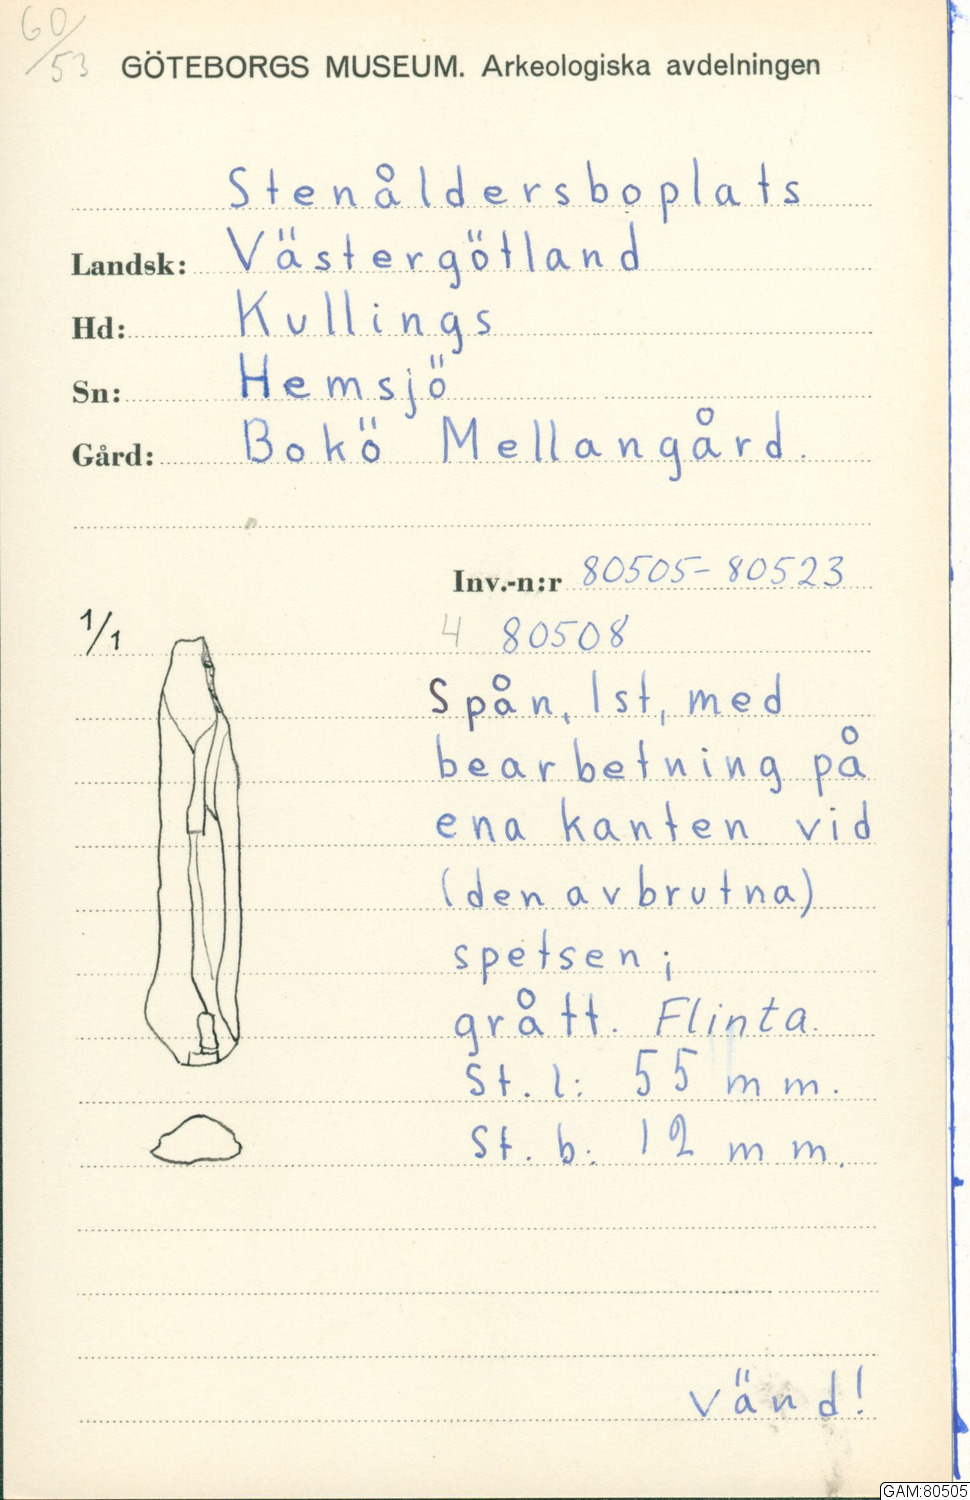 60/53
GÖTEBORGS MUSEUM. Arkeologiska avdelningen
Stenåldersboplats
Landsk: Västergötland
Hd: Kullings
Sn: Hemsjö
Gård: Bokö Mellangård.
Inv.-n:r 80505-80523
1/1
4 80508
Spån, 1st, med
bearbetning på
ena kanten vid
(den avbrutna)
spetsen;
grått. Flinta.
St. l: 55 mm.
St. b: 12 mm.
vänd!
GAM:80505